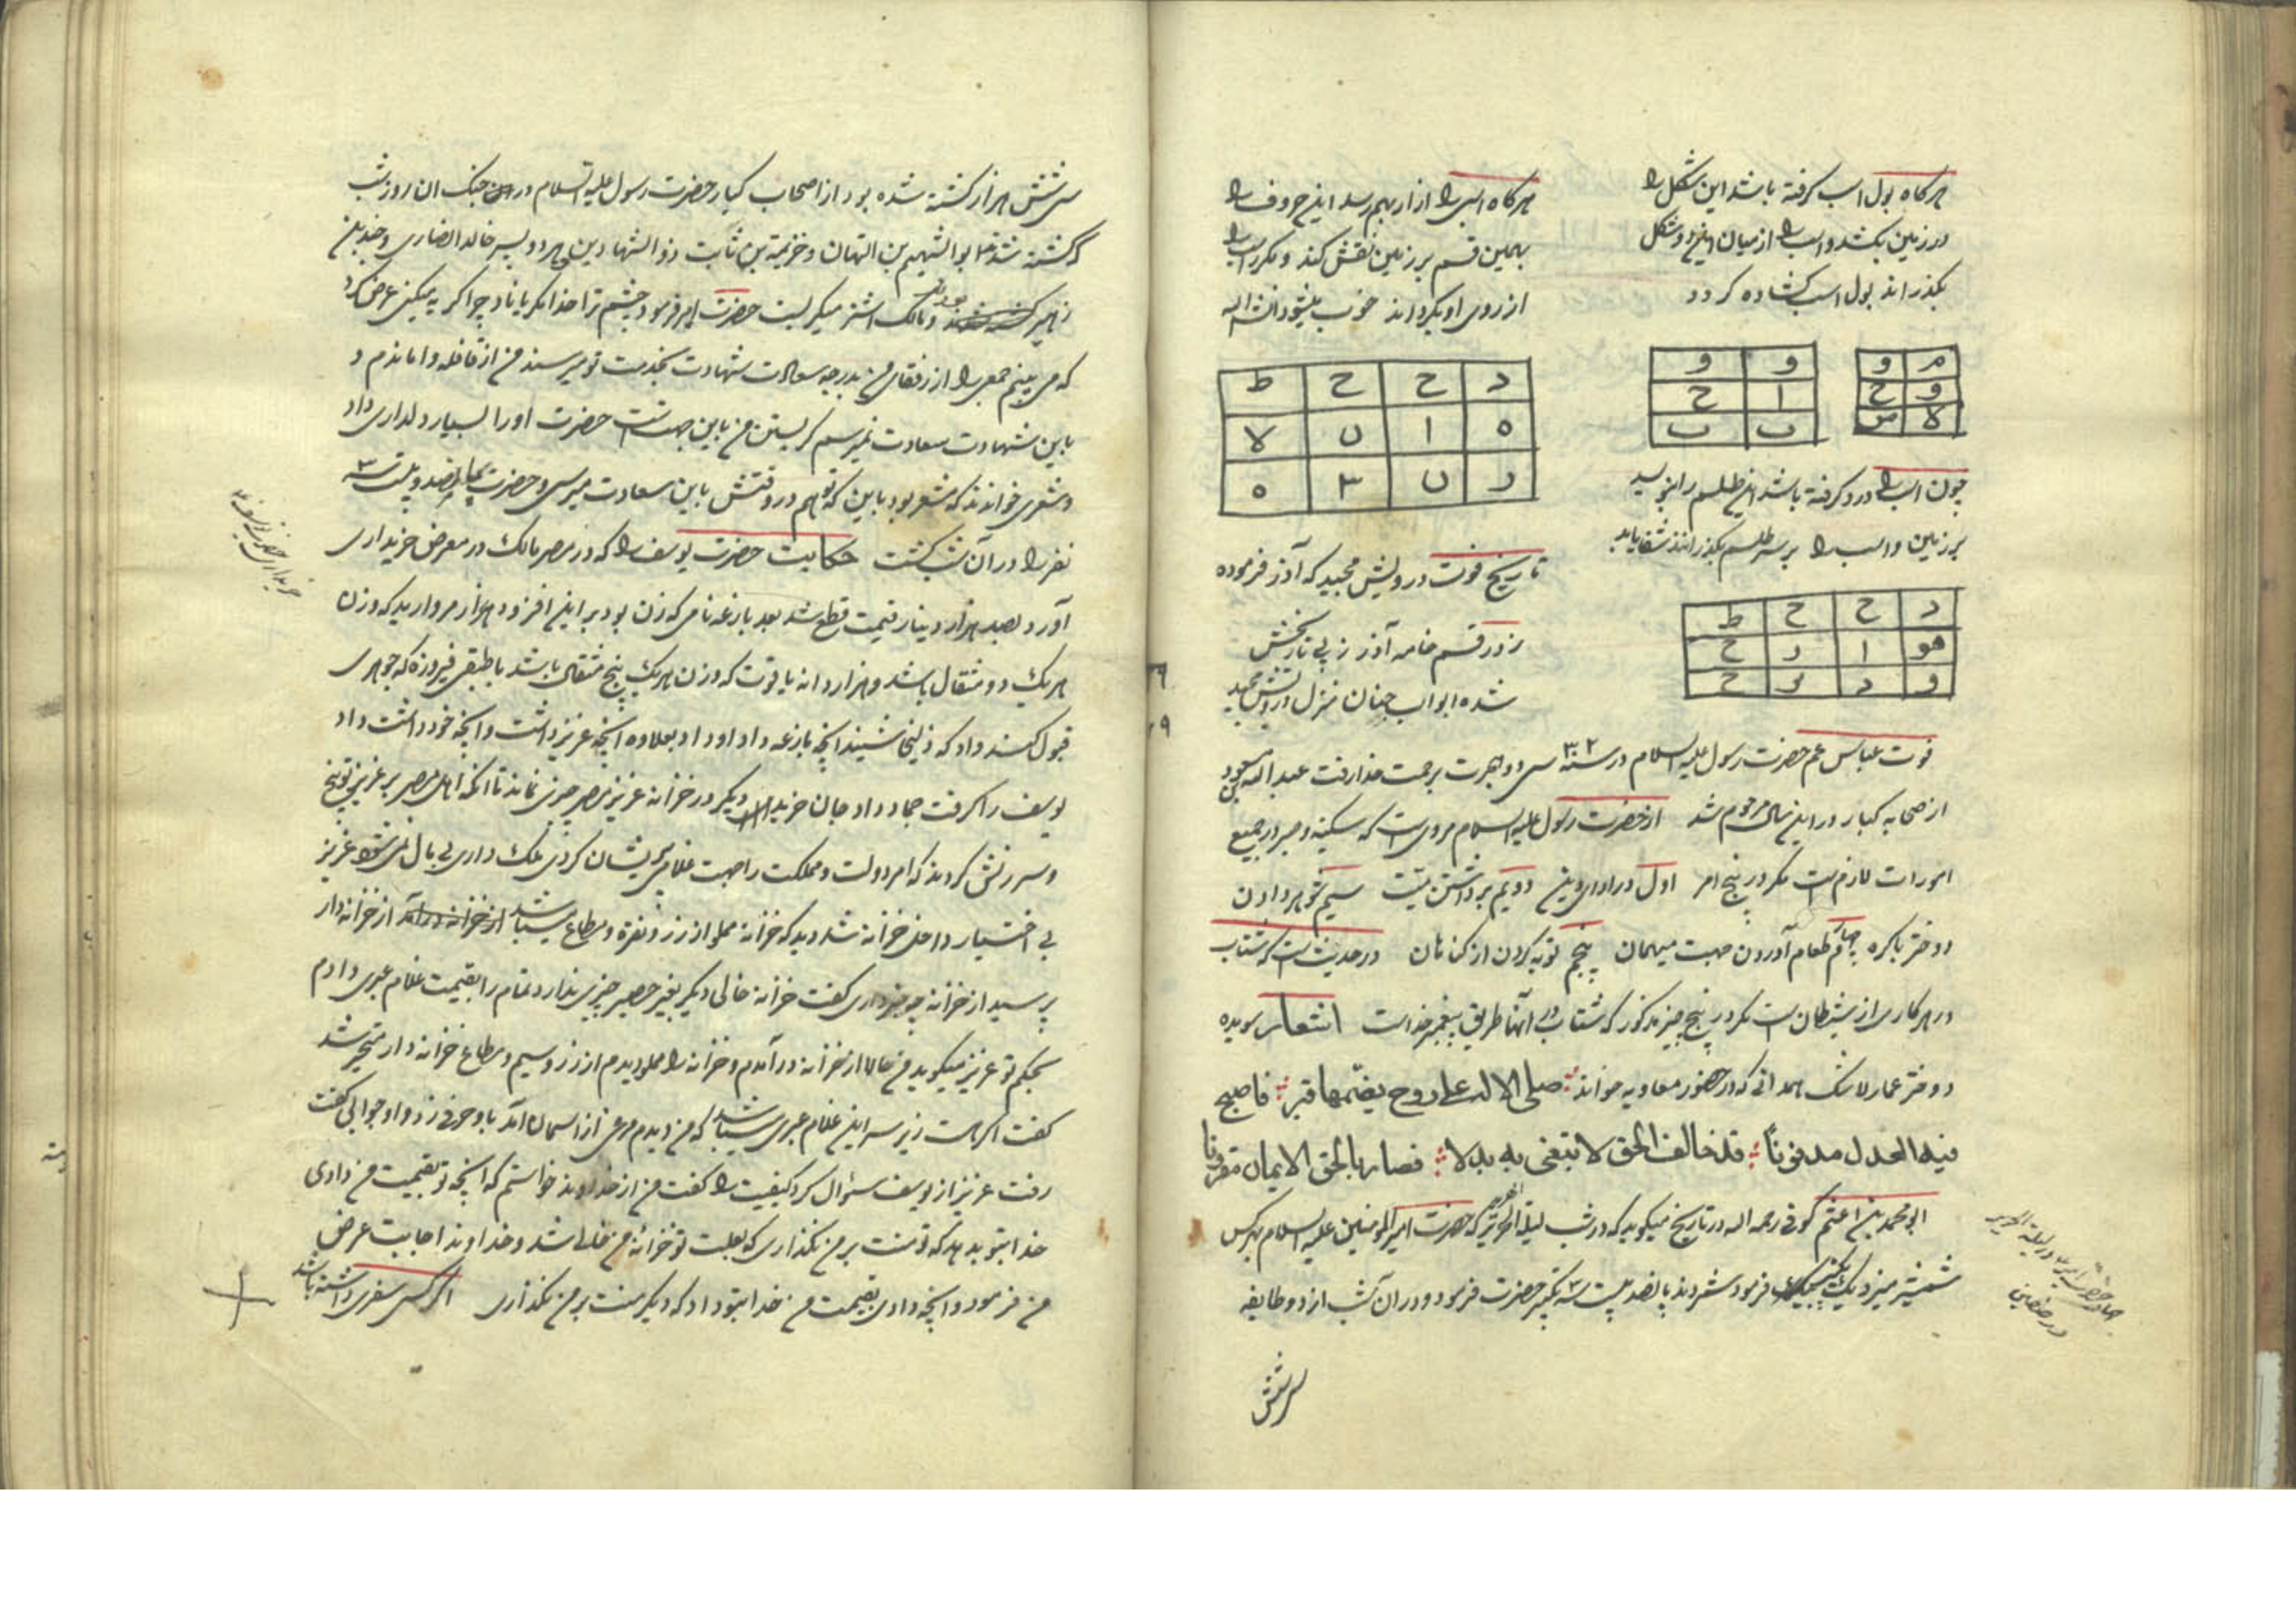 هرکاه بول اسب کرفته باشد این شکل را
در زمین بکشد و اسب را از میان این دو شکل
بکذراند بول اسب کشاده کردد
م و
و ح
لا ص
و و
ا ح
ب ب
چون اسب را درد کرفته باشد این طلسم را بنویسد
بر زمین و اسب را بر سر طلسم بکذرانند شفا یابد
د ح ح ط
هو ا د ح
و د لا ح
هرکاه اسبی را ازار بهم رسد این حروف را
بهمین قسم بر زمین نقش کند و مکرر اسب را
از روی او بکرداند خوب میشود انشاالله
د ح ح ط
ه ا ں لا
د ں ۳ ه
تاریخ فوت درویش مجید که آذر فرموده
زد رقم خامه آذر ز پی تاریخش
شده ابواب جنان منزل درویش مجید
فوت عباس عم حضرت رسول علیه السلام در سنه ۳۲ سی و دو هجرت برحمت خدا رفت عبد الله مسعود
از صحابه کبار در این سال مرحوم شد از حضرت رسول علیه السلام مرویست که سکینه و صبر در جمیع
امورات لازم است مکر در پنج امر اول در ادای دین دویم برداشتن میت سیم شوهر دادن
دختر باکره چهارم طعام آوردن جهت میهمان پنجم توبه کردن از کناهان در حدیث است که شتاب
در هر کاری از شیطان است مکر در پنج چیز مذکور که شتاب در آنها طریق پیغمبر خداست اشعار سویده
دختر عمار همدانی که در حضور معاویه خواند صلی الاله علی روح یضمها قبر فاصبح
فیه العدل مدفونا قد خالف الحق لا یبتغی به بدلا فصار بالحق الایمان مقرونا
ابو محمد بن اعثم کوفی رحمه الله در تاریخ میکوید که در شب لیلة الهریر که حضرت امیر المومنین علیه السلام بهر کس
شمشیر میزد یک تکبیر میفرمود شمردند پانصد بیست سه تکبیر حضرت فرمود و در آن شب از دو طایفه
سی شش
جهاد حضرت امیر در لیلة الهریر
در صفین
سی شش هزار کشته شده بود از اصحاب کبار حضرت رسول علیه السلام در جنک ان روز شب
که کشته شد ابوالهیثم بن التهان و خزیمة بن ثابت ذو الشهادتین هر دو پسر خالد انصاری و جندب بن
زهیر بودند و مالک اشتر میکریست حضرت امیر فرمود چشم ترا خدا نکریاناد چرا کریه میکنی عرض کرد
که می بینم جمعی را از رفقای من بدرجه سعادت شهادت بخدمت تو میرسند من از قافله واماندم و
باین شهادت سعادت نمیرسم کریستن من باین جهت است حضرت اورا بسیار دلداری داد
و شعری خواندند که مشعر بود باین که تو هم در وقتش باین سعادت میرسی و حضرت پانصد و بیست سه
نفر را در آن شب کشت حکایت حضرت یوسف را که در مصر مالک در معرض خریداری
آورد بصد هزار دینار قیمت قطع شد بعد بازغه نامی که زن بود بر این افزود هزار مروارید که وزن
هریک دو مثقال باشد و هزار دانه یاقوت که وزن هریک پنج مثقال باشد با طبقی فیروزه که جوهری
قبول کند داد که زلیخا شنیند انچه بازغه داد او داد بعلاوه انچه عزیز داشت و انچه خود داشت داد
یوسف را کرفت دیکر در خزانه عزیز مصر چیزی نماند تا انکه اهل مصر بر عزیز توبیخ
و سرزنش کردند که امر دولت و مملکت را جهت غلامی پریشان کردی ملک داری بی مال نمیشود عزیز
بی اختیار داخل خزانه شد دید که خزانه مملو از زر و نقره و متاع میباشد از خزانه دار
پرسید از خزانه چه چیز داری کفت خزانه خالی دیکر بغیر حصیر چیزی ندارد تمام را بقیمت غلام عبری دادم
بحکم تو عزیز میکوید من حالا از خزانه در آمدم و خزانه را مملو دیدم از زر و سیم و متاع خزانه دار متحیر شد
کفت اکر هست زیر سر این غلام عبری میباشد که من دیدم مرغی از اسمان آمد با او حرفی زد و او جوابی کفت
رفت عزیز از یوسف سوال کرد کیفیت را کفت من از خداوند خواستم که انچه تو بقیمت من دادی
خدا بتو بدهد که تو منت بر من نکذاری که بعلت تو خزانه من خالی شد و خداوند اجابت عرض
من فرمود و انچه دادی بقیمت من خدا بتو داد که دیکر منت بر من نکذاری اکر کسی سفری داشته باشد